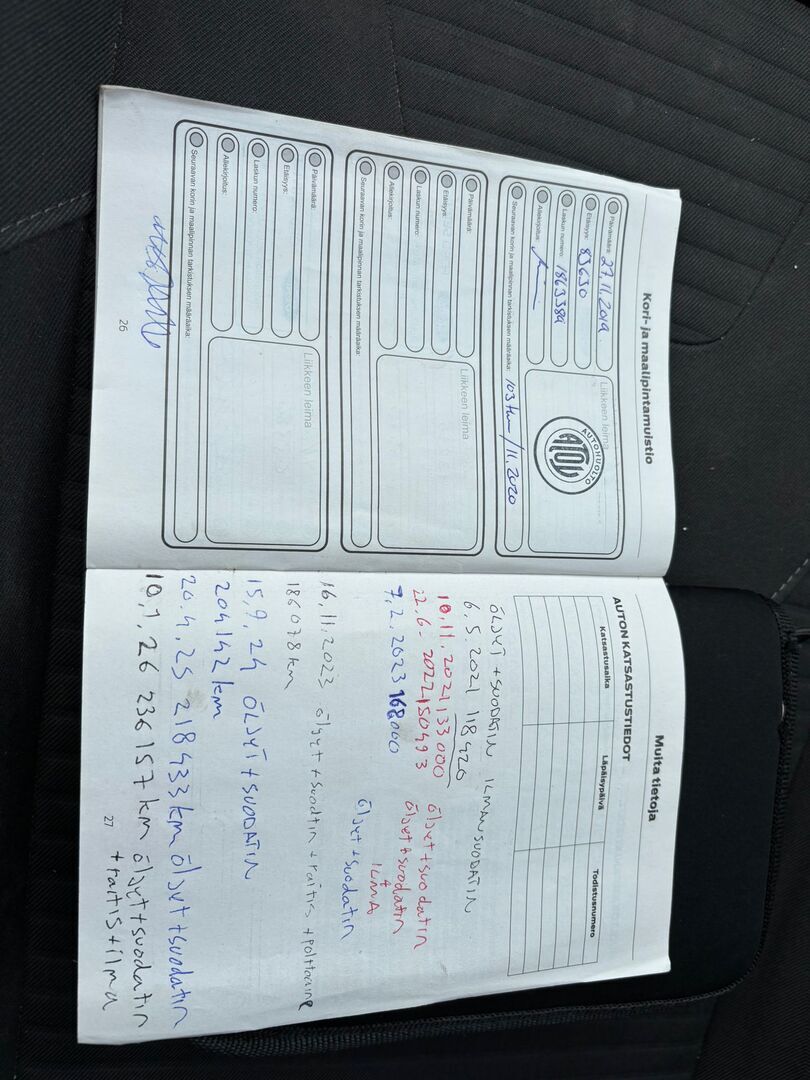 Kori- ja maalipintamuistio
Päivämäärä: 27.11.2019
Etäisyys: 83630
Laskun numero: 1863389
Allekirjoitus:
Liikkeen leima
AUTOHUOLTO
ATOY
Seuraavan korin ja maalipinnan tarkistuksen määräaika: 103 tkm/11.2020
Päivämäärä:
Etäisyys:
Laskun numero:
Allekirjoitus:
Liikkeen leima
Seuraavan korin ja maalipinnan tarkistuksen määräaika:
Päivämäärä:
Etäisyys:
Laskun numero:
Allekirjoitus:
Liikkeen leima
Seuraavan korin ja maalipinnan tarkistuksen määräaika:
26
Muita tietoja
AUTON KATSASTUSTIEDOT
Katsastusaika Läpäisypäivä Todistusnumero
ÖLJYT + SUODATIN ILMANSUODATIN
6.5.2021 118420
10.11.2021 133000 öljyt+suodatin
22.6-2022 150493 öljyt+suodatin
+ ILMA
7.2.2023 168000 öljyt+suodatin
16.11.2023 öljyt+suodtin + raitis + polttoaine
186078 km
15.9.24 ÖLJYT+SUODATIN
204142 km
20.4.25 218433 km öljyt+suodatin
10.1.26 236157 km öljyt+suodatin
+raitis+ilma
27